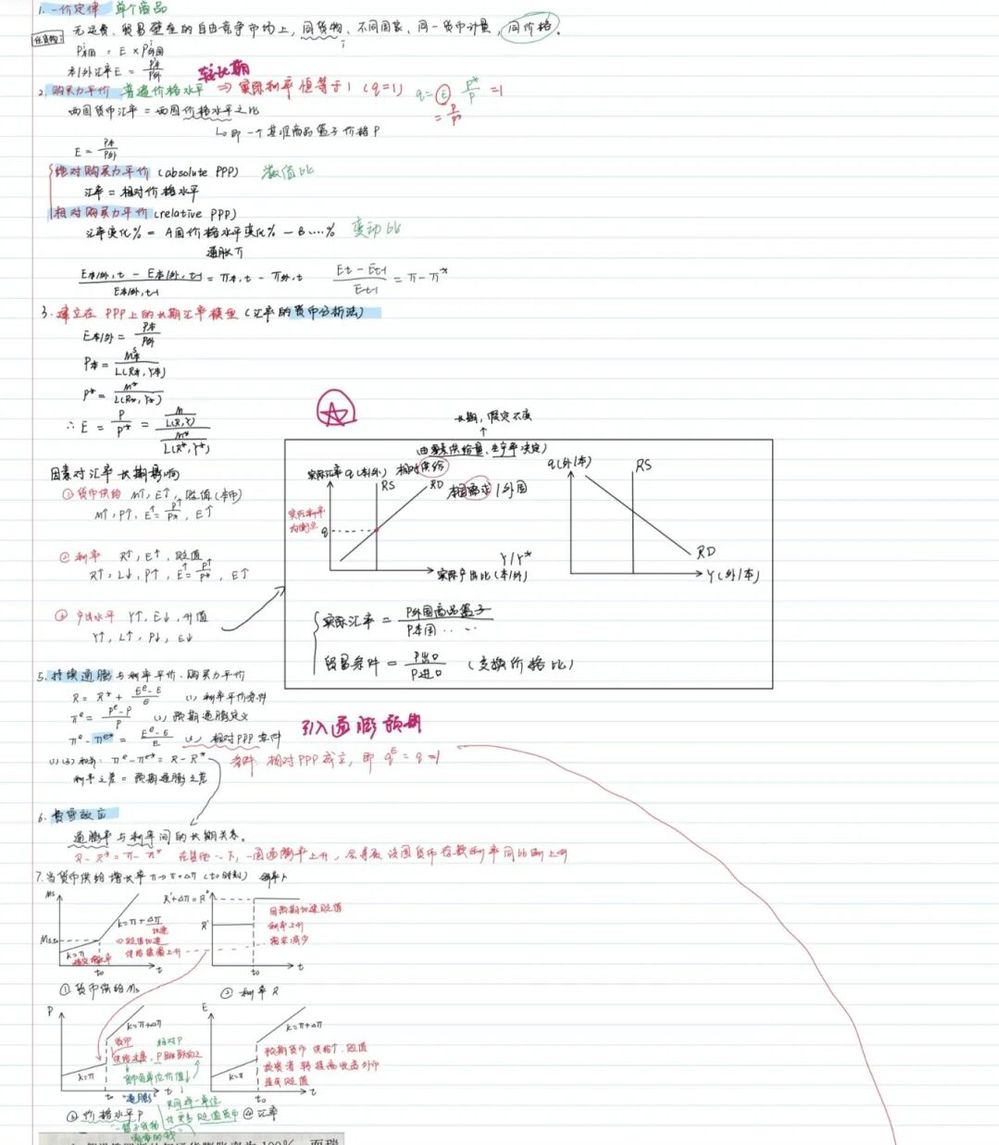 1. 一价定律 单个商品
无运费、贸易壁垒的自由竞争市场上,同货物、不同国家、同一货币计量,同价格。
P本国 = E × P外国
本/外汇率E = P本/P外
较长期
2. 购买力平价 普遍价格水平 ⇒ 实际利率恒等于1 (q=1) q = E P*/P = 1
= P/P*
两国货币汇率 = 两国价格水平之比
↳ 即一个基准商品篮子价格P
E = P本/P外
绝对购买力平价 (absolute PPP) 数值比
汇率 = 相对价格水平
相对购买力平价 (relative PPP)
汇率变化% = A国价格水平变化% - B....% 变动比
通胀π
E本/外,t - E本/外,t-1 / E本/外,t-1 = π本,t - π外,t Et - Et-1 / Et-1 = π - π*
3. 建立在PPP上的长期汇率模型 (汇率的货币分析法)
E本/外 = P本/P外
P本 = M本/L(R本,Y本)
P* = M*/L(R*,Y*)
∴ E = P/P* = M/L(R,Y) / M*/L(R*,Y*)
因素对汇率长期影响
① 货币供给 M↑, E↑, 贬值(本币)
M↑, P↑, E = P↑/P*, E↑
② 利率 R↑, E↑, 贬值
R↑, L↓, P↑, E = P↑/P*, E↑
③ 产出水平 Y↑, E↓, 升值
Y↑, L↑, P↓, E↓
长期,假定不变
↑
(由要素供给量、生产率决定)
实际汇率 q(本/外) 相对供给
RS RD 本国需求/外国
实际利率均衡点
q
Y/Y*
实际产出比(本/外)
q(外/本) RS
RD
Y(外/本)
实际汇率 = P外国商品篮子 / P本国.....
贸易条件 = P出口/P进口 (交换价格比)
5. 持续通胀与利率平价、购买力平价
R = R* + E^e-E / E (1) 利率平价条件
π^e = P^e-P / P (2) 预期通胀定义
π^e - π^e* = E^e-E / E (3) 相对PPP条件
引入通胀预期
(1)(3)联立: π^e - π^e* = R - R*
条件:相对PPP成立,即 q^E = q = 1
利率之差 = 预期通胀之差
6. 费雪效应
通胀率与利率间的长期关系。
R - R* = π - π* 在其他一下,一国通胀率上升,会导致该国货币存款利率同比例上升
7. 当货币供给增长率 π → π+Δπ (t0时刻) 斜率k
Ms
k=π+Δπ
k=π
t0 t
① 货币供给Ms
R'+Δπ = R''
R'
因预期加速贬值
利率上升
需求减少
t0 t
② 利率R
P
k=π+Δπ
k=π
t0 t
③ 价格水平P
E
k=π+Δπ
k=π
预期货币供给↑,贬值
投资者转投高收益外币
t0 t
④ 汇率